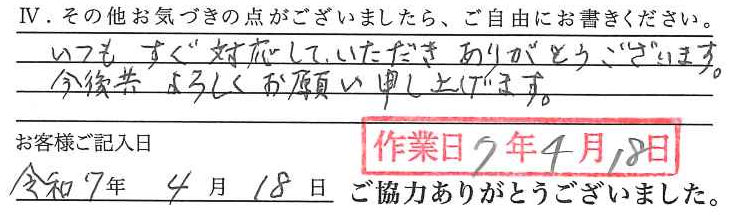 Ⅳ．その他お気づきの点がございましたら、ご自由にお書きください。
いつも すぐ 対応して、いただき ありがとうございます。
今後共 よろしく お願い申し上げます。
お客様ご記入日
作業日 7年4月18日
令和7年 4月 18日 ご協力ありがとうございました。